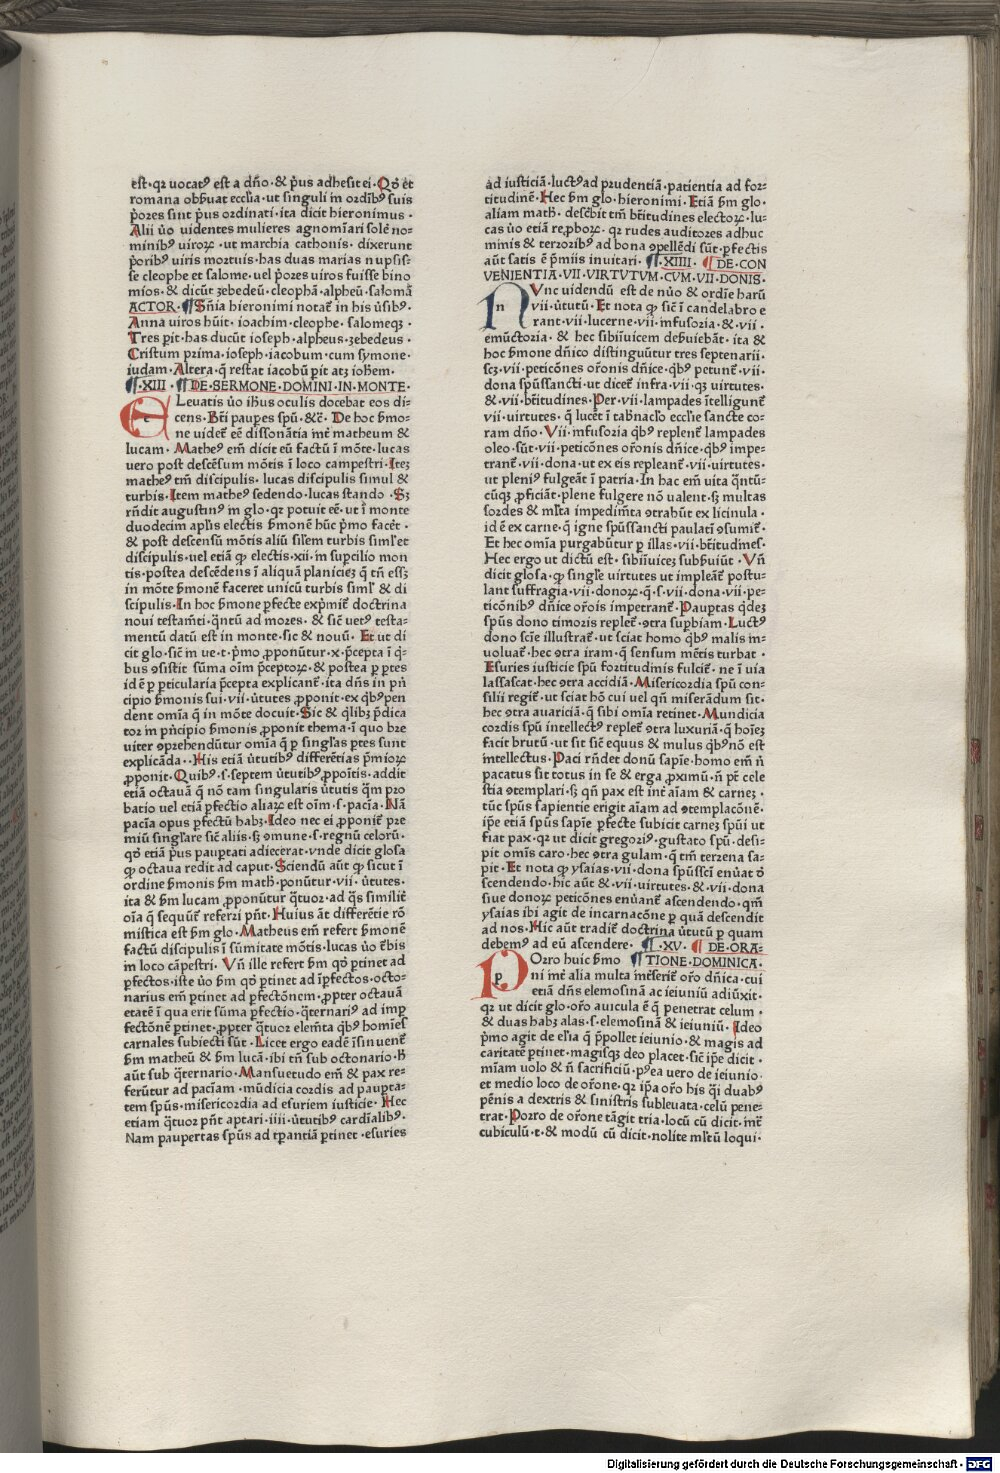 est·qꝛ uocatꝰ est a dño·& p̃us adhesit ei·Qð et
romana obb̃uat eccl̃ia·ut singuli in ordĩbꝰ suis
p̃ores sint p̃us ordinati·ita dicit hieronimus·
Alii ũo uidentes mulieres agnomĩari solẽ no-
minibꝰ uiroꝝ·ut marchia cathonis·dixerunt
p̃oribꝰ uiris mortuis·has duas marias nupsis-
se cleophe et salome·uel p̃ores uiros fuisse bino
mios·& dicũt zebedeũ·cleophã·alpheũ·salomã
ACTOR·¶Sñia hieronimi notat̃ in his ũsibꝰ·
Anna uiros hũit·ioachim·cleophe·salomeqꝫ·
Tres pit·has ducũt ioseph·alpheus·zebedeus·
Cristum prima·ioseph·iacobum·cum symone·
iudam·Altera·q̃ restat iacobũ pit atꝫ ioh̃em·
¶·XIII·¶DE·SERMONE·DOMINI·IN·MONTE·
ELeuatis ũo ih̃us oculis docebat eos di-
cens·Bt̃i paup̃es spũ·&c̃·De hoc ẜmo-
ne uidet̃ eẽ dissonãtia int̃ matheum &
lucam·Matheꝰ em̃ dicit eũ factũ ĩ mõte·lucas
uero post descẽsum mõtis ĩ loco campestri·Iteꝫ
matheꝰ tm̃ discipulis·lucas discipulis simul &
turbis·Item matheꝰ sedendo·lucas stando·Sꝫ
rñdit augustinꝰ in glo·qꝛ potuit eẽ·ut ĩ monte
duodecim apl̃is electis ẜmonẽ hũc p̃mo facẽt·
& post descensũ mõtis aliũ sil̃em turbis siml̃ et
discipulis·uel etiã ꝙ electis·xii·in sup̃cilio mon
tis·postea descẽdens ĩ aliquã planicieꝫ q̃ tñ essꝫ
in mõte ẜmonẽ faceret unicũ turbis siml̃ & di
scipulis·In hoc ẜmone p̃fecte exp̃mit̃ doctrina
noui testam̃ti·q̃ntũ ad mores·& sic̃ uetꝰ testa-
mentũ datũ est in monte·sic & nouũ·Et ut di
cit glo·sic̃ in ue·t·p̃mo ꝓponũtur·x·p̃cepta ĩ q̃-
bus ꝯsistit sũma oĩm p̃ceptoꝝ·& postea p̱ p̱tes
id ẽ p̱ p̱ticularia p̃cepta explicant̃·ita dñs in pñ
cipio ẜmonis sui·vii·ũtutes ꝓponit·ex q̃bꝰ pen
dent omĩa q̃ in mõte docuit·Sic & q̃libꝫ p̃dica
tor in p̃ncipio ẜmonis ꝓponit thema·ĩ quo bre
uiter ꝯprehendũtur omĩa q̃ p̱ singl̃as p̱tes sunt
explicãda··His etiã ũtutibꝰ differẽtias p̃mioꝝ
ꝓponit·Quibꝰ·s·septem ũtutibꝰ ꝓpoĩtis·addit
etiã octauã q̃ nõ tam singularis ũtutis q̃m pro
batio uel etiã p̱fectio aliaꝝ est oĩm·s·pacĩa·Nã
pacĩa opus p̱fectũ habꝫ·Ideo nec ei ꝓponit̃ pre
miũ singl̃are sic̃ aliis·sꝫ ꝯmune·s·regnũ celorũ·
qð etiã p̃us paup̱tati adiecerat·vnde dicit glosa
ꝙ octaua redit ad caput·Sciendũ aũt ꝙ sicut ĩ
ordine ẜmonis ẜm math·ponũtur·vii·ũtutes·
ita & ẜm lucam ꝓponũtur q̃tuor·ad q̃s similit̃
oĩa q̃ sequũt̃ referri pñt·Huius ãt differẽtie rõ
mistica est ẜm glo·Matheus em̃ refert ẜmonẽ
factũ discipulis ĩ sũmitate mõtis·lucas ũo t̃bis
in loco cãpestri·Vñ ille refert ẜm qð p̱tinet ad
p̱fectos·iste ũo ẜm qð p̱tinet ad ĩp̱fectos·octo-
narius em̃ p̱tinet ad p̱fectõnem·ꝓpter octauã
etatẽ ĩ qua erit sũma p̱fectio·q̃ternariꝰ ad imp̱
fectõnẽ p̱tinet·ꝓpter q̃tuor elem̃ta q̃bꝰ homĩes
carnales subiecti sũt·Licet ergo eadẽ ĩsinuent̃
ẜm matheũ & ẜm lucã·ibi tñ sub octonario·ħ
aũt sub q̃ternario·Mansuetudo em̃ & pax re-
ferũtur ad pacĩam·mũdicia cordis ad paup̱ta-
tem spũs·misericordia ad esuriem iusticie·Hec
etiam q̃tuor pñt aptari·iiii·ũtutibꝰ cardĩalibꝰ·
Nam paupertas spũs ad tp̱antiã p̱tinet·esuries
ad iusticiã·luctꝰ ad prudentiã·patientia ad for-
titudinẽ·Hec ẜm glo·hieronimi·Etiã ẜm glo·
aliam math·desc̃bit tm̃ bt̃itudines electoꝝ·lu-
cas ũo etiã rep̱boꝝ·qꝛ rudes auditores adhuc
minis & terroribꝰ ad bona ꝯpellẽdi sũt·p̱fectis
aũt satis ẽ p̃miis inuitari·¶·XIIII·¶DE·CON
VENIENTIA·VII·VIRTVTVM·CVM·VII·DONIS·
NVnc uidendũ est de nũo & ordĩe harũ
vii·ũtutũ·Et nota ꝙ sic̃ ĩ candelabro e
rant·vii·lucerne·vii·infusoria·&·vii·
emũctoria·& hec sibiĩuicem deb̃uiebãt·ita &
hoc ẜmone dñico distinguũtur tres septenarii·
scꝫ·vii·peticõnes or̃onis dñice·q̃bꝰ petunt̃·vii·
dona spũssancti·ut dicet̃ infra·vii·qꝫ uirtutes·
&·vii·bt̃itudines·Per·vii·lampades ĩtelligunt̃
vii·uirtutes·q̃ lucẽt ĩ tabnac̃lo eccl̃ie sancte co-
ram dño·Vii·infusoria q̃bꝰ replent̃ lampades
oleo·sũt·vii·peticõnes or̃onis dñice·q̃bꝰ impe-
trant̃·vii·dona·ut ex eis repleant̃·vii·uirtutes·
ut pleniꝰ fulgeãt ĩ patria·In hac em̃ uita q̃ntũ-
cũqꝫ ꝓficiãt·plene fulgere nõ ualent·sꝫ multas
sordes & ml̃ta impedim̃ta ꝯtrahũt ex licinula·
id ẽ ex carne·q̃ igne spũssancti paulatĩ ꝯsumit̃·
Et hec omĩa purgabũtur p̱ illas·vii·bt̃itudĩnes·
Hec ergo ut dictũ est·sibiĩuiceꝫ subb̃uiũt·Vñ
dicit glosa·ꝙ singl̃e uirtutes ut impleãt̃ postu-
lant suffragia·vii·donoꝝ·q̃·s·vii·dona·vii·pe-
ticõnibꝰ dñice or̃ois impetrant̃·Paup̱tas q̃deꝫ
spũs dono timoris replet̃·ꝯtra sup̱biam·Luctꝰ
dono scĩe illustrat̃·ut sciat homo q̃bꝰ malis in-
uoluat̃·hec ꝯtra iram·q̃ sensum mẽtis turbat·
Esuries iusticie spũ fortitudinis fulcit̃·ne ĩ uia
lassascat·hec ꝯtra accidiã·Misericordia spũ con-
silii regit̃·ut sciat hõ cui uel qñ miserãdum sit·
hec ꝯtra auariciã·q̃ sibi omĩa retinet·Mundicia
cordis spũ intellectꝰ replet̃ ꝯtra luxuriã·q̃ hoĩeꝫ
facit brutũ·ut sit sic̃ equus & mulus q̃bꝰ nõ est
intellectus·Paci rñdet donũ sapĩe·homo em̃ ñ
pacatus sit totus in se & erga ꝓximũ·ñ põt cele
stia ꝯtemplari·sꝫ qñ pax est int̃ aĩam & carneꝫ·
tũc spũs sapientie erigit aĩam ad ꝯtemplacõnẽ·
ip̃e etiã spũs sapĩe p̱fecte subicit carneꝫ spũi ut
fiat pax·qꝛ ut dicit gregoriꝰ·gustato spũ·desi-
pit omis caro·hec ꝯtra gulam·q̃ tm̃ terrena sa-
pit·Et nota ꝙ ysaias·vii·dona spũssci enũat dõ
scendendo·hic aũt &·vii·uirtutes·&·vii·dona
siue donoꝝ peticõnes enũant̃ ascendendo·qm̃
ysaias ibi agit de incarnacõne p̱ quã descendit
ad nos·Hic aũt tradit̃ doctrina ũtutũ p̱ quam
debemꝰ ad eũ ascendere·¶·XV·¶DE·ORA-
POrro huic ẜmo ¶TIONE·DOMINICA·
ni int̃ alia multa ĩnserit̃ or̃o dñica·cui
etiã dñs elemosinã ac ieiuniũ adiũxit·
qꝛ ut dicit glo·or̃o auicula ẽ q̃ penetrat celum·
& duas habꝫ alas·s·elemosinã & ieiuniũ·Ideo
p̃mo agit de el̃ia q̃ p̃pollet ieiunio·& magis ad
caritatẽ p̱tinet·magisqꝫ deo placet·sic̃ ip̃e dicit·
mĩam uolo & ñ sacrificiũ·p̃ea uero de ieiunio·
et medio loco de or̃one·qꝛ ip̃a or̃o his q̃i duabꝰ
pẽnis a dextris & sinistris subleuata·celũ pene-
trat·Porro de or̃one tãgit tria·locũ cũ dicit·int̃
cubiculũ·t·& modũ cũ dicit·nolite ml̃tũ loqui·
Digitalisierung gefördert durch die Deutsche Forschungsgemeinschaft - DFG